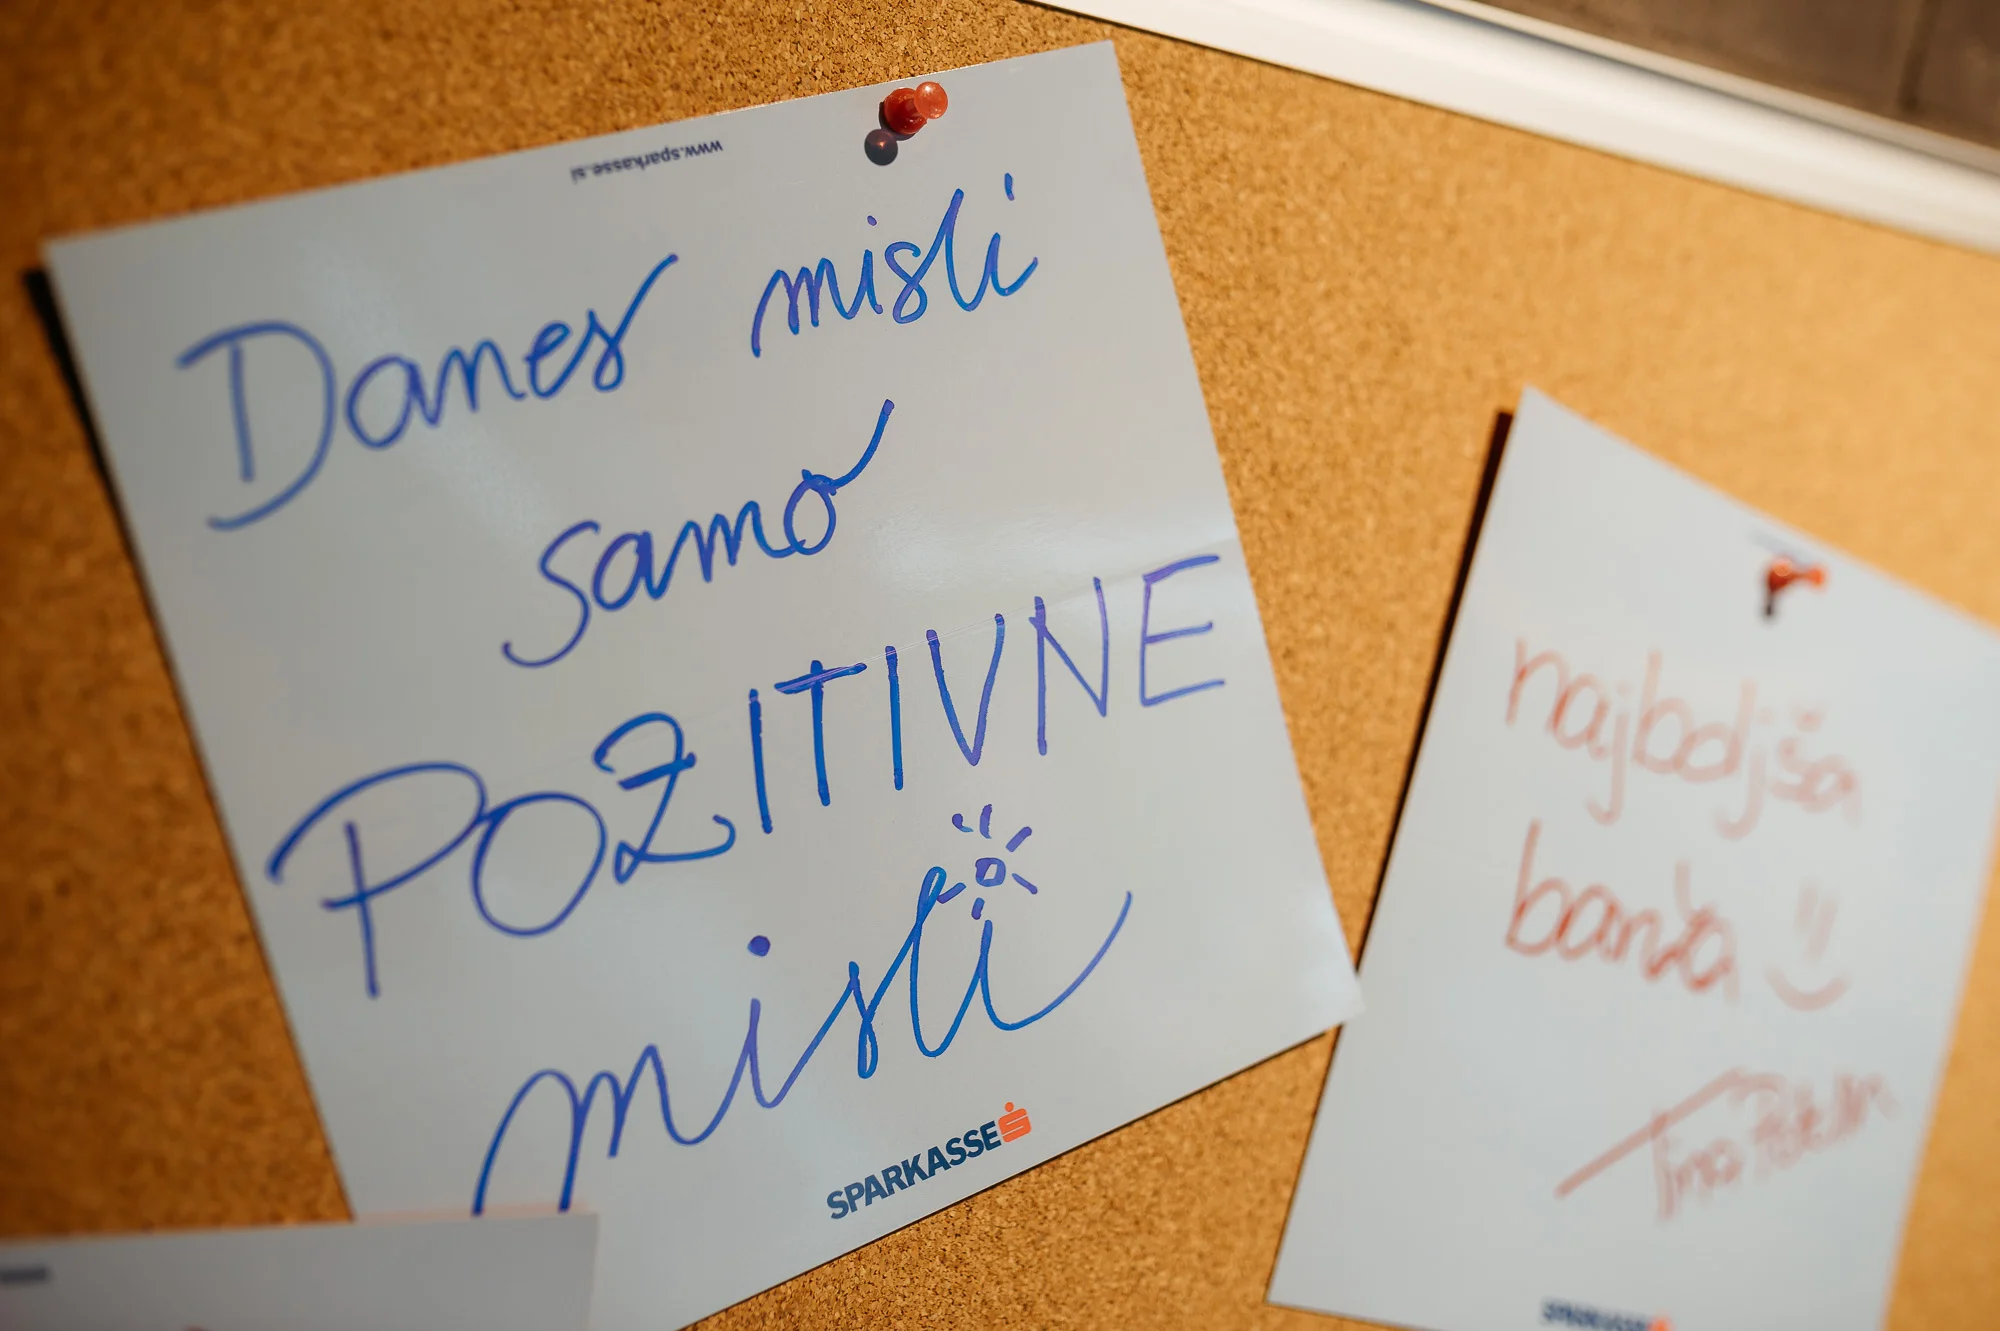 www.sparkasse.si
Danes misli
samo
POZITIVNE
misli
SPARKASSE
najboljša
banka
Tina
SPARKASSE